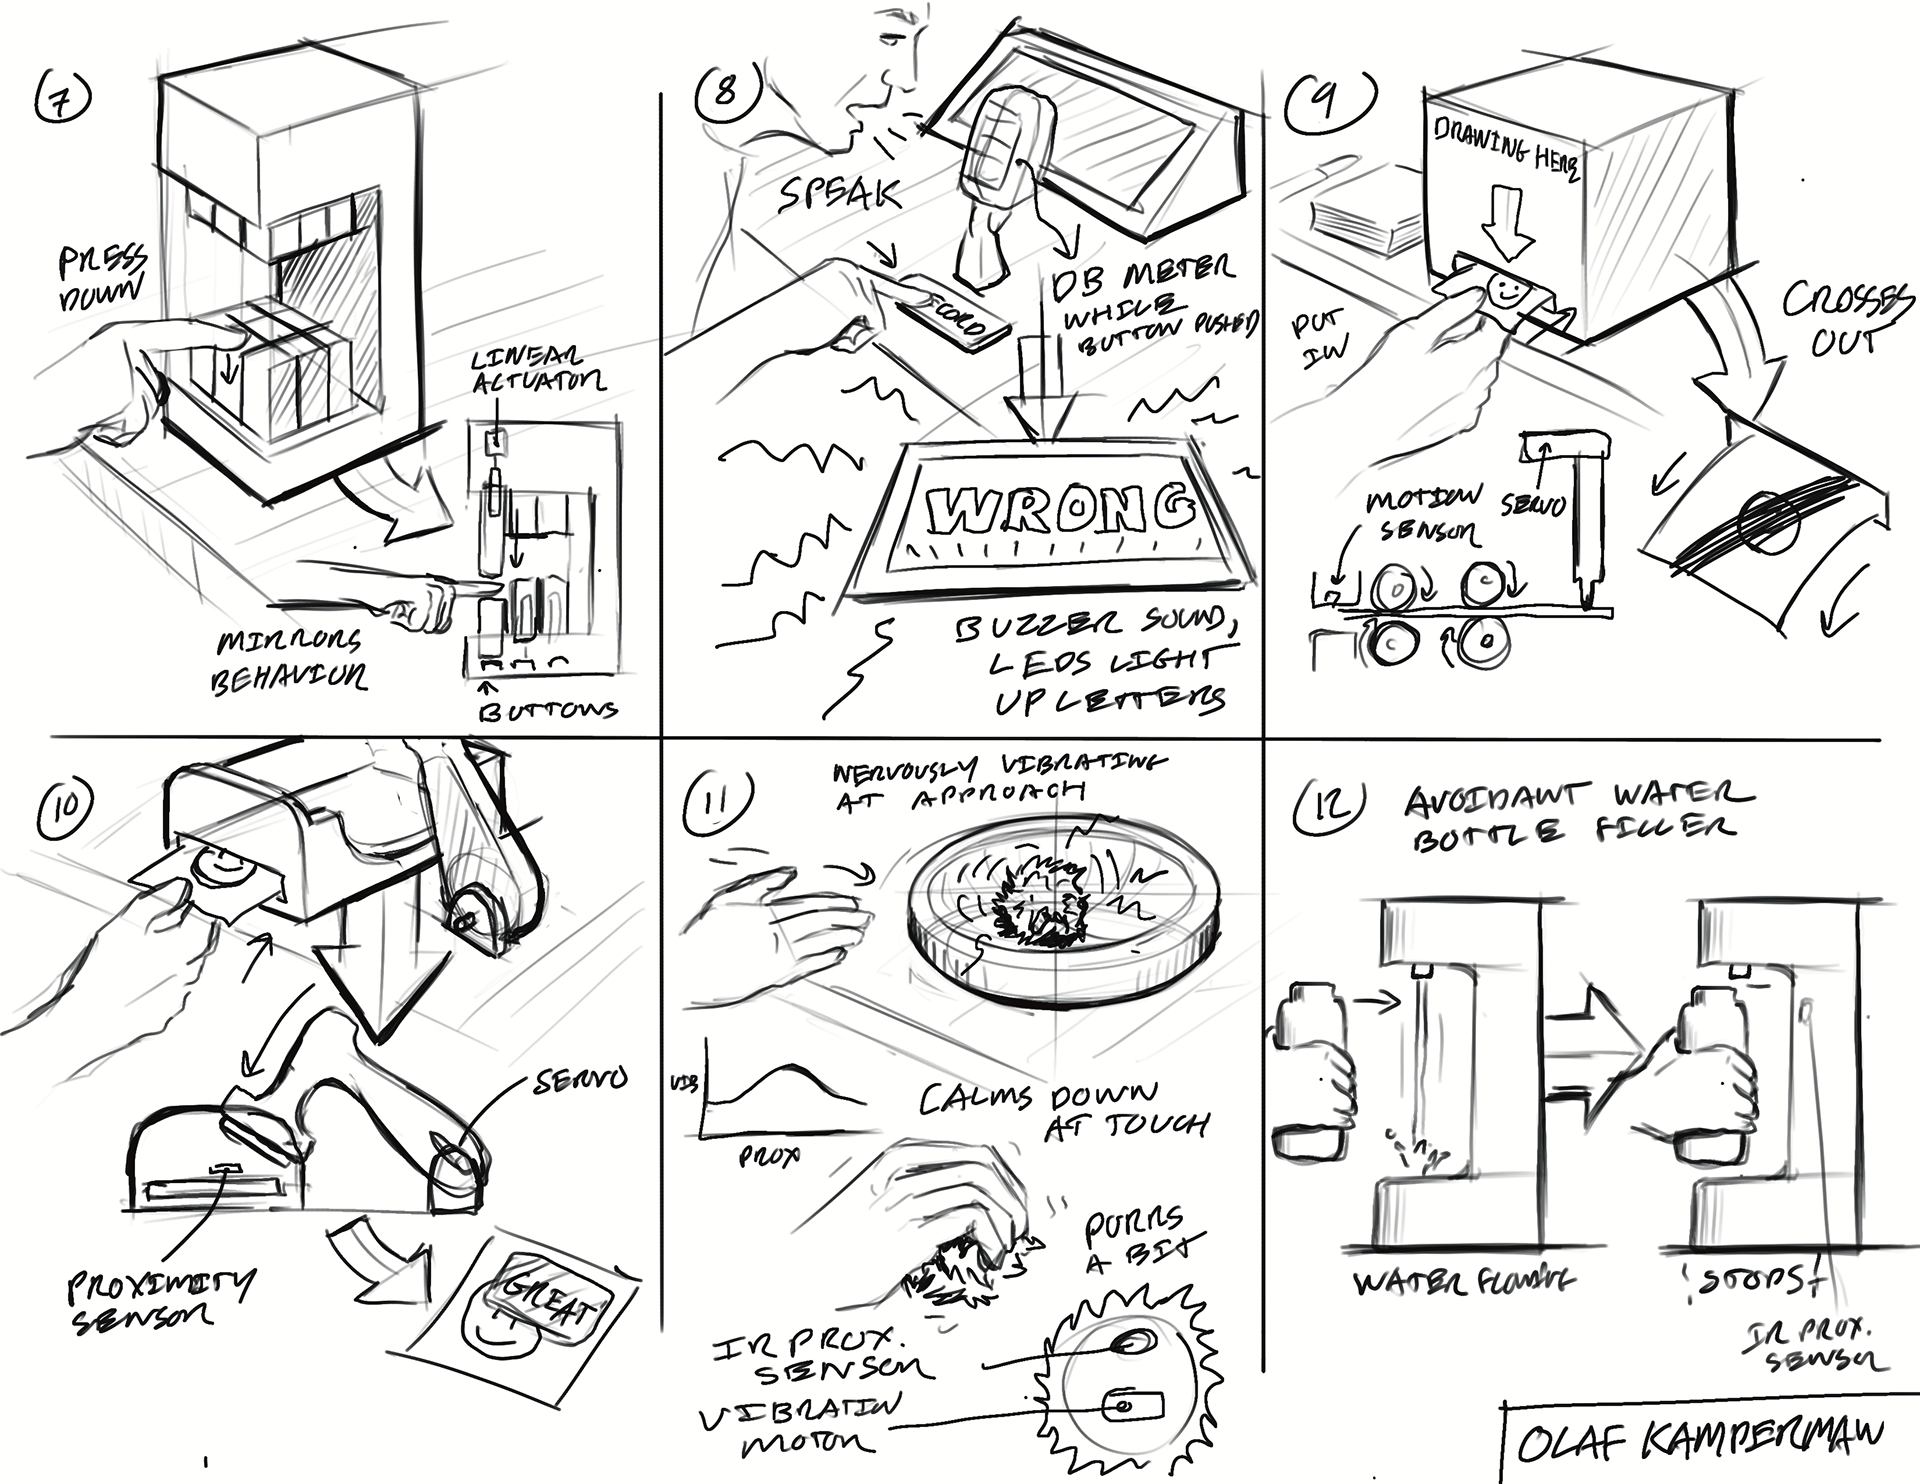 7
PRESS
DOWN
LINEAR
ACTUATOR
MIRRORS
BEHAVIOUR
BUTTONS
8
SPEAK
RECORD
DB METER
WHILE
BUTTON PUSHED
WRONG
BUZZER SOUND,
LEDS LIGHT
UP LETTERS
9
DRAWING HERE
PUT
IN
CROSSES
OUT
MOTION
SENSOR
SERVO
10
SERVO
PROXIMITY
SENSOR
GREAT
11
NERVOUSLY VIBRATING
AT APPROACH
VIB
PROX
CALMS DOWN
AT TOUCH
PURRS
A BIT
IR PROX.
SENSOR
VIBRATION
MOTOR
12
AVOIDANT WATER
BOTTLE FILLER
WATER FLOWING
STOPS!
IR PROX.
SENSOR
OLAF KAMPERMAN